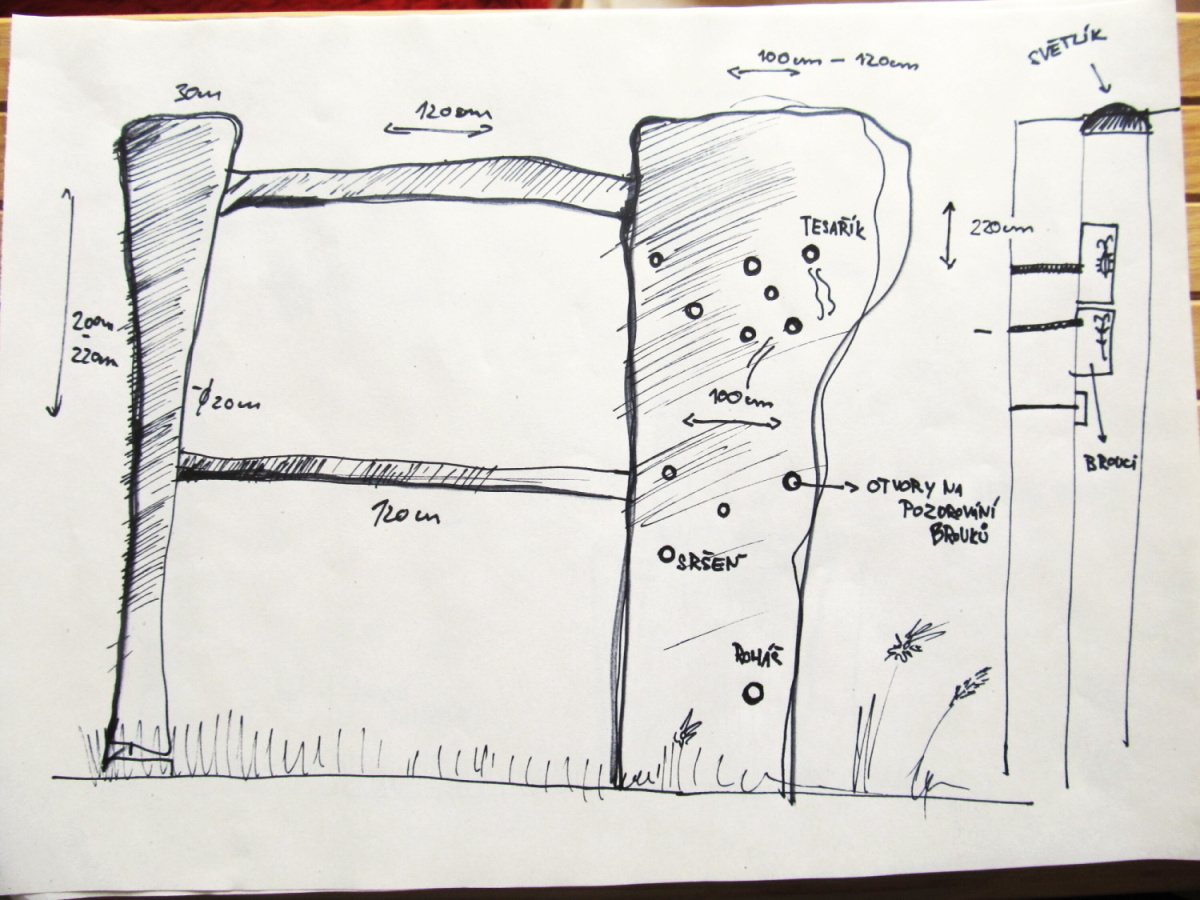 30cm
120cm
100cm – 120cm
SVĚTLÍK
TESAŘÍK
220cm
200cm
-
220cm
ϕ20cm
100cm
BROUCI
120cm
OTVORY NA
POZOROVÁNÍ
BROUKŮ
SRŠEŇ
ROHÁČ